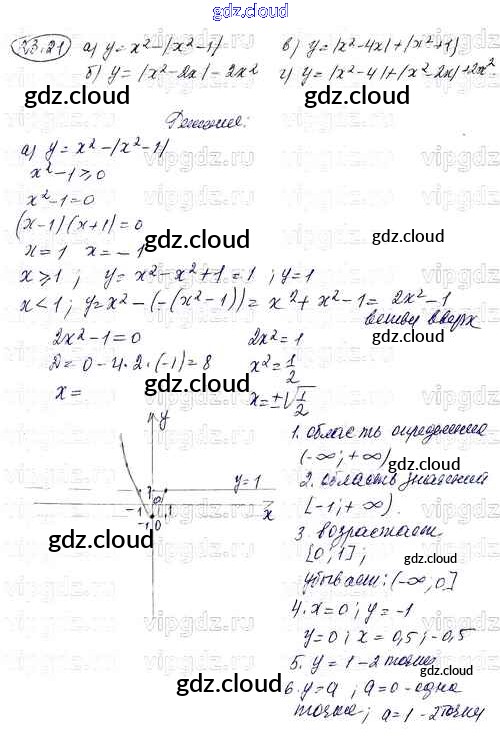 gdz.cloud
23.21 а) y = x² - |x² - 1| в) y = |x² - 4x| + |x² + 1|
б) y = |x² - 2x| - 2x² г) y = |x² - 4| + |x² - 2x| + 2x²
gdz.cloud gdz.cloud
Решение:
а) y = x² - |x² - 1|
x² - 1 ≥ 0
x² - 1 = 0
(x - 1)(x + 1) = 0
gdz.cloud
x = 1 x = - 1
x ≥ 1 ; y = x² - x² + 1 = 1 ; y = 1
x < 1 ; y = x² - (-(x² - 1)) = x² + x² - 1 = 2x² - 1
ветви вверх
2x² - 1 = 0 2x² = 1
D = 0 - 4·2·(-1) = 8 x² = 1/2
x = x = ±√1/2
gdz.cloud gdz.cloud
y
1. область определения
(-∞; +∞)
gdz.cloud
2. область значений
y = 1
[-1; +∞).
-1 1
x
-1 0
gdz.cloud
3. возрастает:
[0; 1];
gdz.cloud
убывает: (-∞; 0]
4. x = 0; y = -1
y = 0; x = 0,5; -0,5
5. y = 1 - 2 точки
gdz.cloud gdz.cloud
6. y = a ; a = 0 - одна
точка; a = 1 - 2 точки